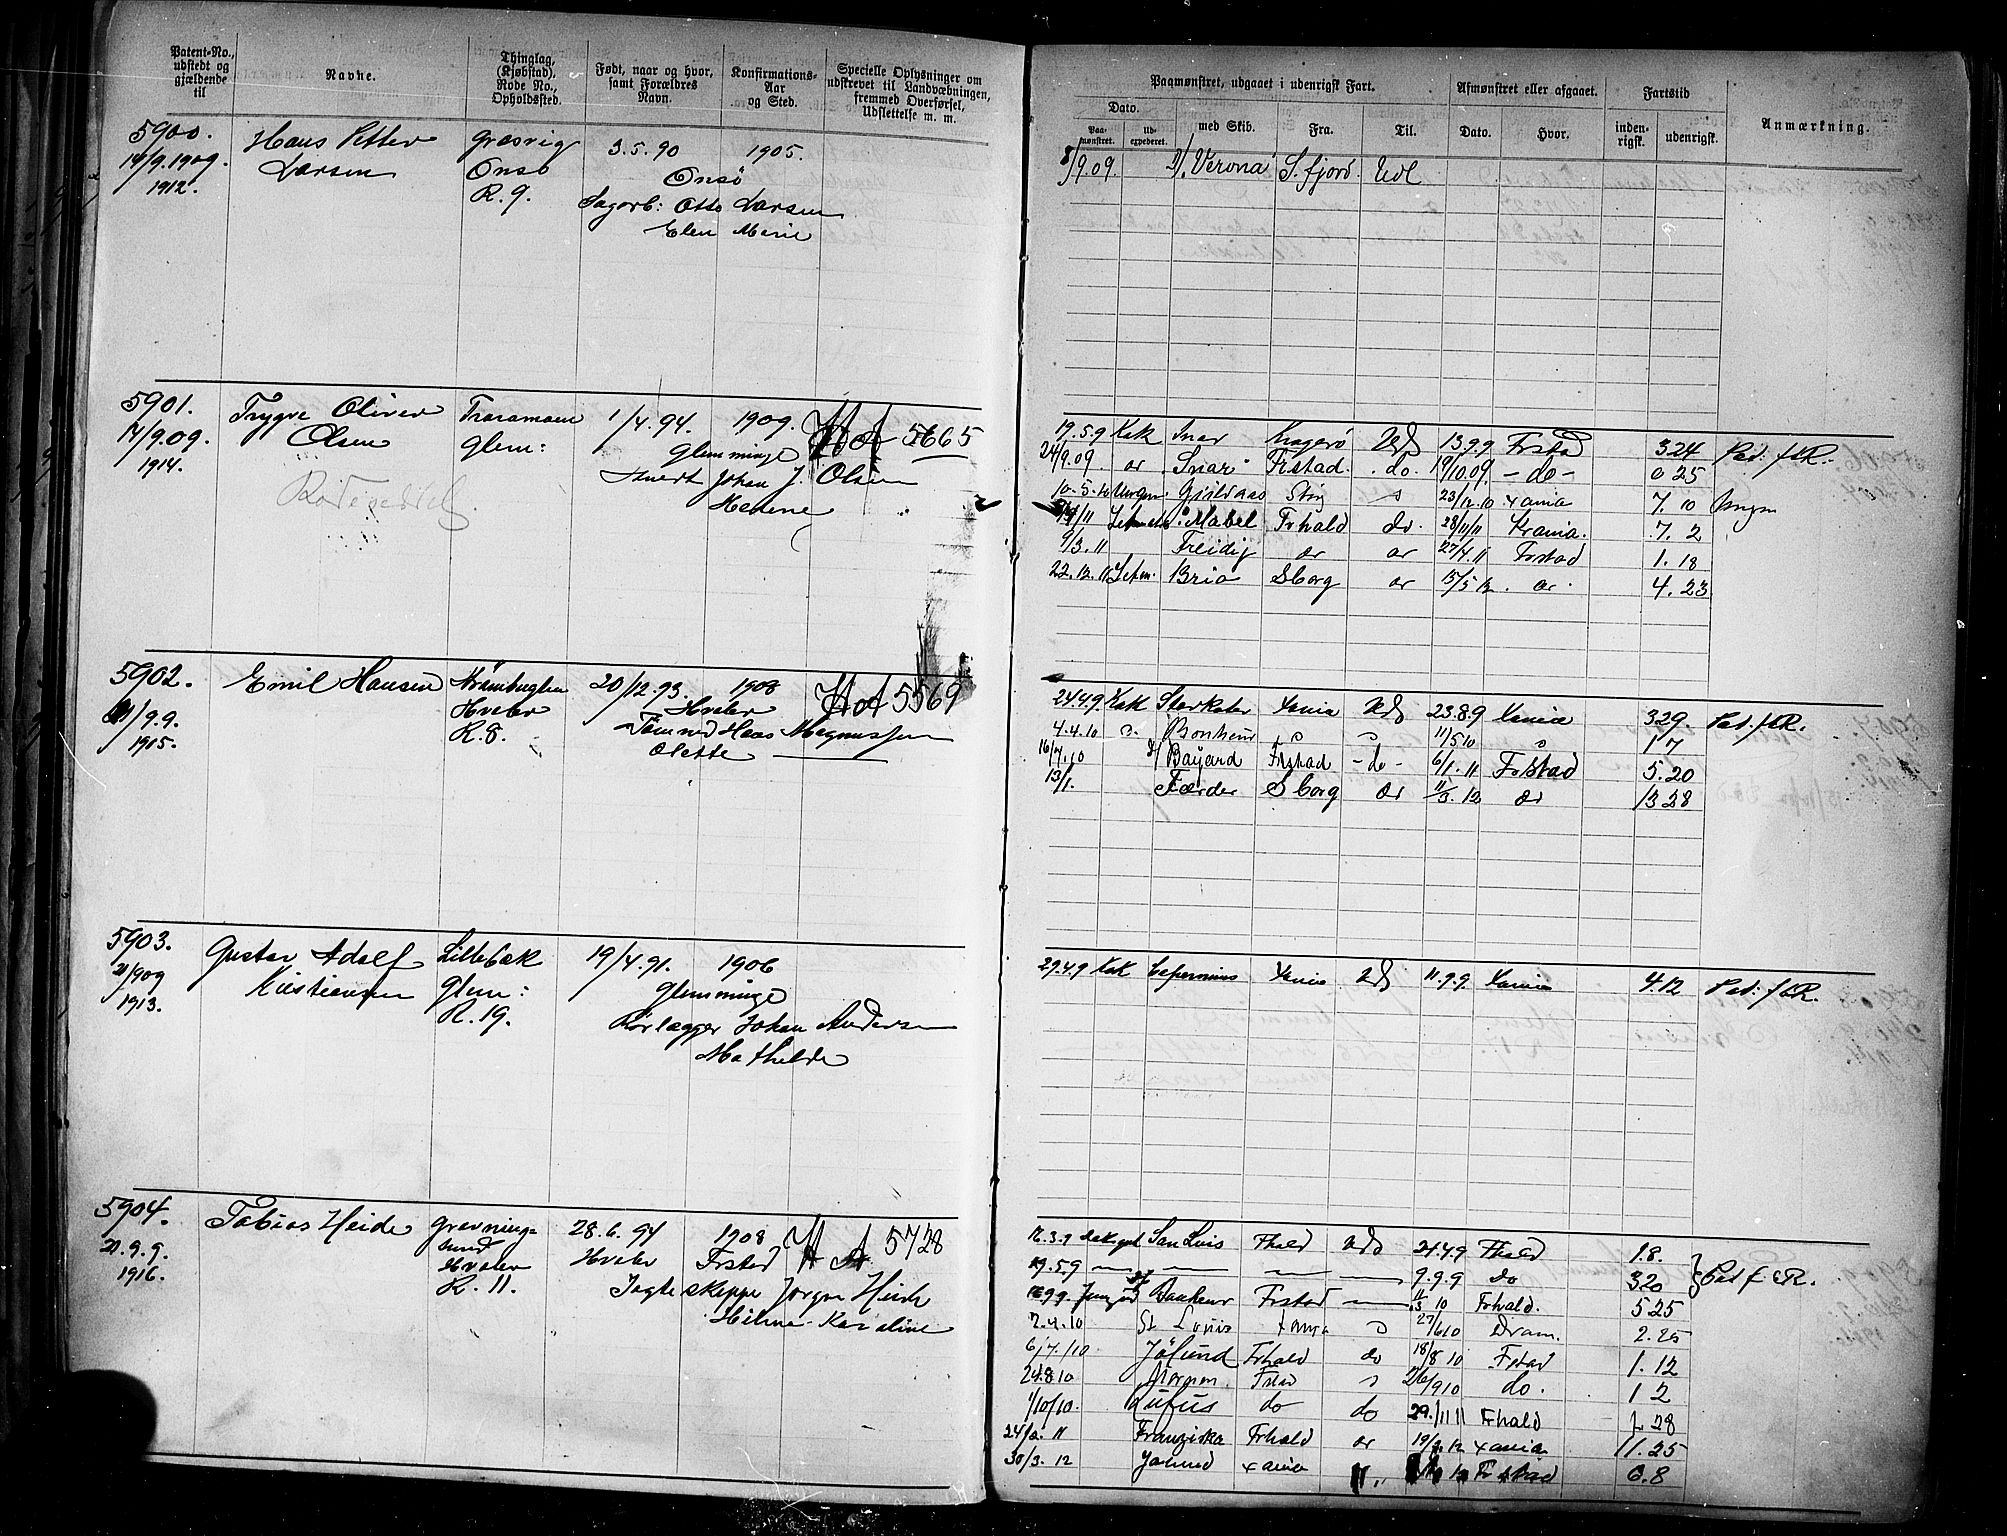 Patent-No., udstedt og gjældende til
Navne.
Thinglag, (Kjøbstad). Rode No., Opholdssted.
Født, naar og hvor, samt Forældres Navn.
Konfirmations-Aar og Sted.
Specielle Oplysninger om udskrevet til Landværningen, fremmed Overførsel, Udslettelse m. m.
5900. Hans Petter Græsvig 3.5.90 1905.
14/9.1909. Larsen Onsø Onsø
1912. R. 9. Sagarb: Otto Larsen
Elen Marie
5901. Trygve Oliver Traramoen 1/4.94. 1909. HA 5665
14/9.09. Olsen Glem: Glemminge
1914. Johan J. Olsen
Helene
5902. Emil Hansen 20/12.93. 1908 HA 5569
21/9.9. Hvaler Hvaler
1915. R. 8. Tømmermd Hans Magnussen
Olette
5903. Gustav Adolf Lillebæk 19/4.91. 1906
21/909 Kristiansen Glem: Glemminge
1913. R. 19. Rørlægger Johan Andersen
Mathilde
5904. Tobias Heide Gravning- 28.6.94 1908 HA 5728
21.9.9. sund Hvaler Frstad
1916. Hvaler
R. 11. Jagteskipper Jørgen Heide
Hilma Karoline
Paamønstret, udgaaet i udenrigst Fart.
Afmønstret eller afgaaet.
Fartstid
Anmærkning.
Dato.
Paa-mønstret.
Ud-expederet.
med Skib.
Fra.
Til.
Dato.
Hvor.
inden-rigsk.
udenrigsk.
8/9.09. D/ Verona S.fjord. Udl
19.5.9 Kok Snar Kragerø Uds 13.9.9 Frstad 3 24 Pat. f. R.
24/9.09. do Snar Frstad. do. 19/10.09. - do - 0 25
10.5.10 23/12.10 Xania 7. 10
14/1 11 Mabel Frhald do. 28/11/11 Xrania. 7. 2
9/3.11 Freidig do do 27/4.11 Frstad 1. 18
22.12.11 Letm. Brio Sborg do 15/5 12. do. 4. 23
24.4.9 Kok Starkater Xania Uds 23.8.9 Xania 3 29. Pat. f. R.
4.4.10 Bonheur 11/5 10 1 7
16/7.10 D/ Bayard Frstad - do - 6/1.11 Frstad 5. 20
13/1. Færder Sborg do 11/3.12 do 13 28
29.4.9 Kok Xania Uds 11.9.9. Xania 4.12 Pat. f. R.
12.3.9 San Luis Fhald Uds 24.4.9 Fhald 1.8.
19.5.9 — — — — 9.9.9 Do 3 20 Pat f R.
16.9.9. Bonheur Frstad — 11/3 10 Frhald. 5 25
7.4.10 St. Louis Xania 27/6 10 Dram. 2. 25
6/7/10 Jølund Frhald do 18/8 10 Fstad 1. 12
24.8.10 Morgen Fstad 26/9 10 do. 1 2
1/10/10. Rufus do do 29./11 11 Frhald 1 28
24/2. 11 Franziska Frhald do 19/2.12 Xania 11. 25
30/3. 12 Jølund Xania " Frstad 0. 8